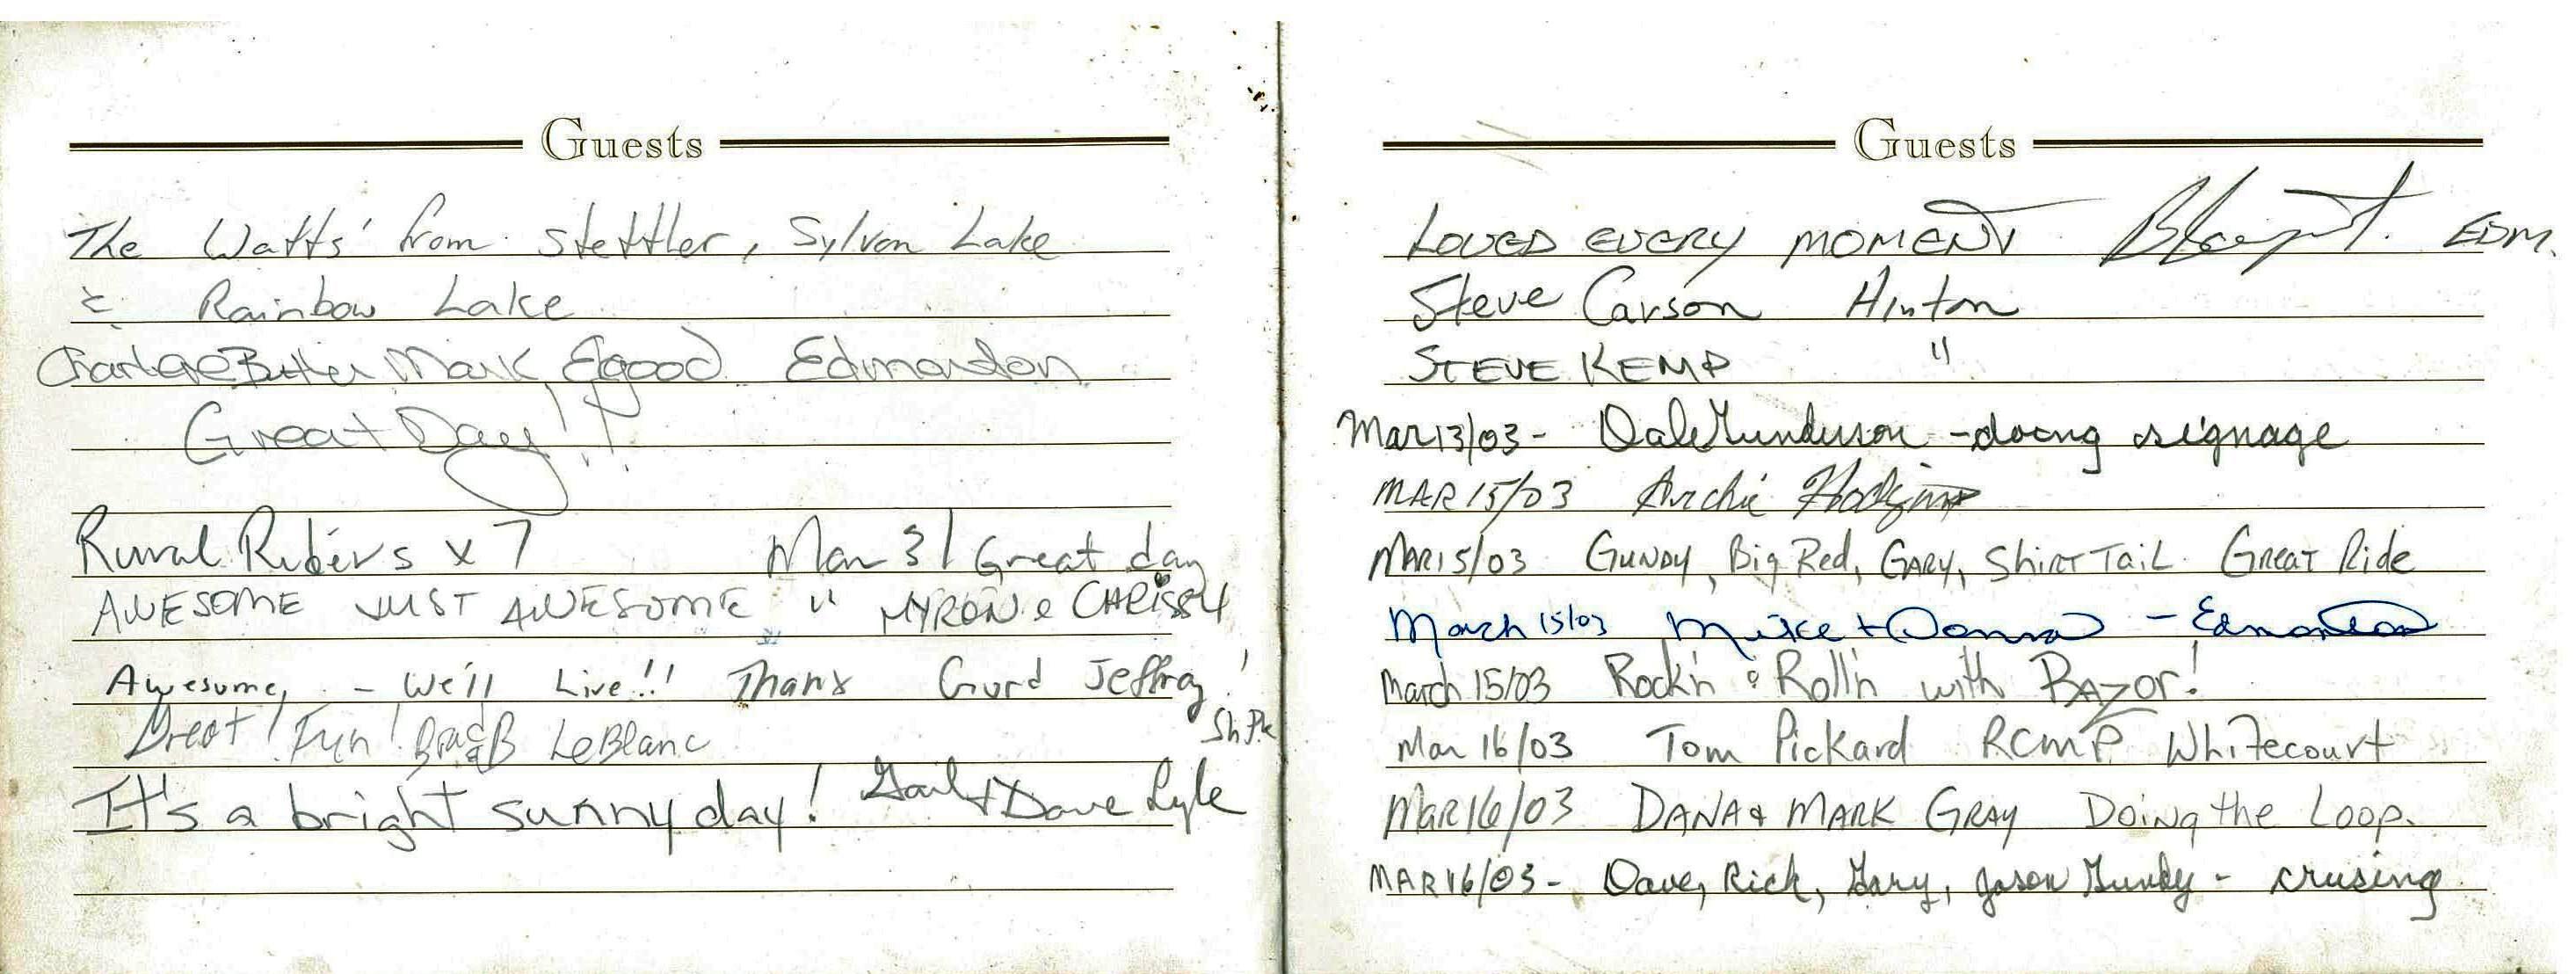 Guests
The Watts' from Stettler, Sylvan Lake
& Rainbow Lake
Charlene Butler Mark Edmonton
Great Day!!
Rural Riders x 7 Mar 31 Great day
AWESOME JUST AWESOME " MYRON & CHRISSY
Awesome, - We'll Live!! Thanx Gord Jeffray!
Sh.Pk
Great! Fun! B LeBlanc
It's a bright sunny day! Gail & Dave Lyle
Guests
LOVED EVERY MOMENT EDM.
Steve Carson Hinton
STEVE KEMP "
Mar13/03 - Dale Gunderson - doing signage
MAR 15/03 Archie
MAR15/03 GUNDY, Big Red, GARY, ShiRT TaiL GReaT Ride
March 15/03 Mike + Donna - Edmonton
March 15/03 Rock'n & Roll'n with RAZor!
Mar 16/03 Tom Pickard RCMP Whitecourt
MAR16/03 DANA & MARK GRAY Doing the Loop.
MAR16/03 - Dave, Rick, Gary, Jason Gundy - crusing